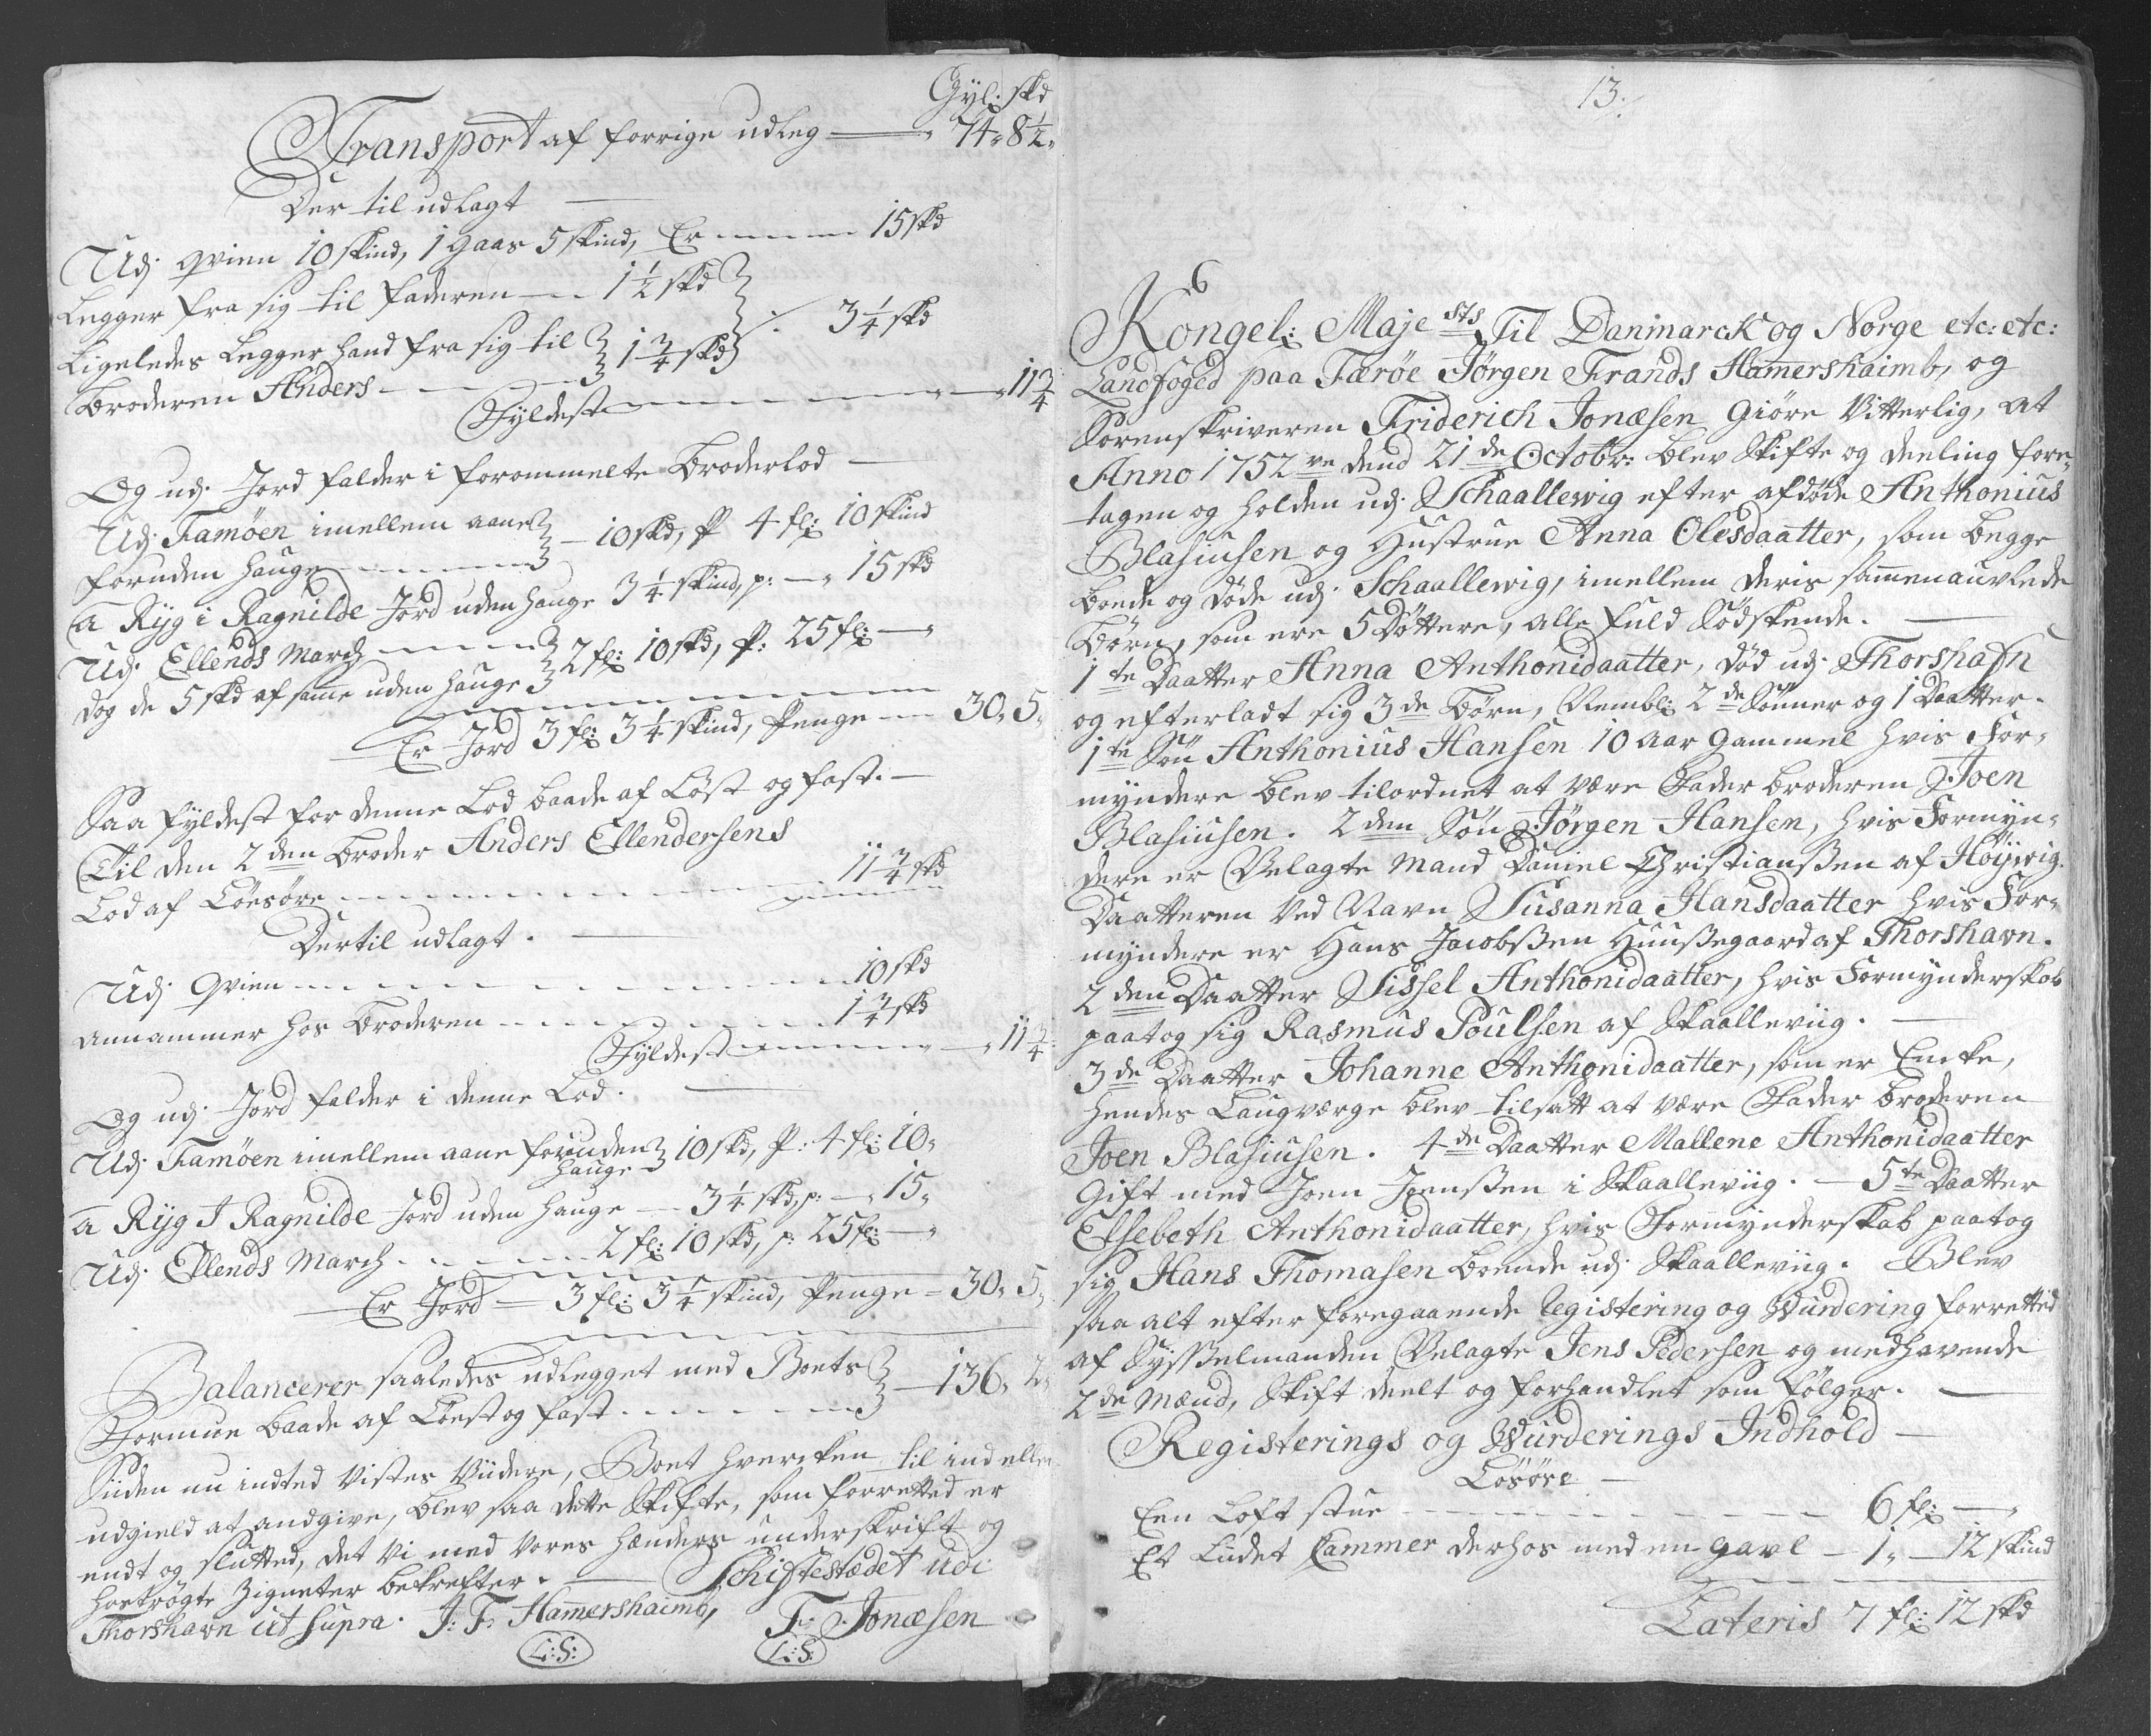 Gyl: skd
Transport af forrige udleg — 74 „ 8½ „
Der til udlagt —
Udj qvien 10 skind, 1 gaas 5 skind, Er — 15 skd
Legger fra sig til faderen — 1½ skd
Ligeledes legger hand fra sig til
broderen Anders — 1¾ skd ⁒ 3¼ skd
Fyldest — 11¾
Og udj Jord falder i forommelte broderlod —
Udj Famöen imellem aane
foruden hauge — 10 skd, P 4 fl: 10 skind
a Ryg i Ragnilde Jord uden hauge 3¼ skind, p: — „ 15 skd
Udj Ellends March —
dog de 5 skd af samme uden hauge 2 fl: 10 skd, P: 25 fl: — „
Er Jord 3 fl: 3¼ skind, Penge — 30 „ 5 „
Saa fyldest for denne Lod baade af Löst og fast. —
Til den 2den broder Anders Ellendersens
Lod af Löesöre — 11¾ skd
Dertil udlagt. —
Udj qvien — 10 skd
annammer hos broderen — 1¾ skd
Fyldest — „ 11¾
Og udj Jord falder i denne Lod. —
Udj Famöen imellem aane foruden
hauge 10 skd, P: 4 fl: 10 „
a Ryg I Ragnilde Jord uden hauge — 3¼ skd, p: — „ 15 „
Udj Ellends March — 2 fl: 10 skd, p: 25 fl: — „
Er Jord — 3 fl: 3¼ skind, Penge — 30 „ 5 „
Balancerer saaledes udlegget med Boets
Formue baade af Löest og fast — 136 „ 2 „
Siiden nu indted vistes viidere, Boet hvercken til ind eller
udgield at andgive, blev saa dette Skifte, som forretted er
endt og sluttet, det vi med vores hænders underskrift og
hoströgte Zigneter bekrefter. — Schiftestædet udi
Thorshavn ut supra. J: F: Hamershaimb, F. Jonæsen
L: S: L: S:
13.
Kongel: Maje sts Til Danmarck og Norge etc: etc:
Landfoged paa Færöe Jörgen Frands Hamershaimb, og
Sorenskriveren Friderich Jonæsen giöre vitterlig, at
Anno 1752 ve dend 21de Octobr: blev Skifte og deeling fore„
tagen og holden udj Schaallewig efter afdöde Anthonius
Blasiusen og Hustrue Anna Olesdaatter, som begge
boede og döde udj Schaallewig, imellem deris sammenauvlede
börn, som ere 5 Döttere, alle fuld Södskende. —
1te Daatter Anna Anthonidaatter, död udj Thorshafn
og efterladt sig 3de börn, Nembl: 2de Sönner og 1 Daatter.
1te Sön Anthonius Hansen 10 aar gammel hvis For„
myndere blev tilordnet at være Fader broderen Joen
Blasiusen. 2den Sön Jörgen Hansen, hvis Formyn„
dere er Velagte Mand Daniel Christianßen af Höywig.
Daatteren ved Navn Susanna Hansdaatter hvis For„
myndere er Hans Jacobßen Huusegaard af Thorshavn.
2den Daatter Sissel Anthonidaatter, hvis Formynderskab
paatog sig Rasmus Poulsen af Skaalleviig. —
3de Daatter Johanne Anthonidaatter, som er Encke,
hendes Laugværge blev tilsatt at være Fader broderen
Joen Blasiusen. 4de Daatter Mallene Anthonidaatter
Gift med Joen Joenßen i Skaalleviig. — 5te Daatter
Elsebeth Anthonidaatter, hvis Formynderskab paatog
sig Hans Thomasen boende udj Skaalleviig. Blev
saa alt efter foregaaende Registering og Wurdering forretted
af Sysselmanden Velagte Jens Pedersen og medhavende
2de Mænd, Skift deelt og forhandlet som fölger. —
Registerings og Wurderings Indhold —
Lösöre —
Een Loft stue — 6 fl: — „
Et Lidet Cammer derhos med en gavl — 1 „ — 12 skind
Lateris 7 fl: 12 skd